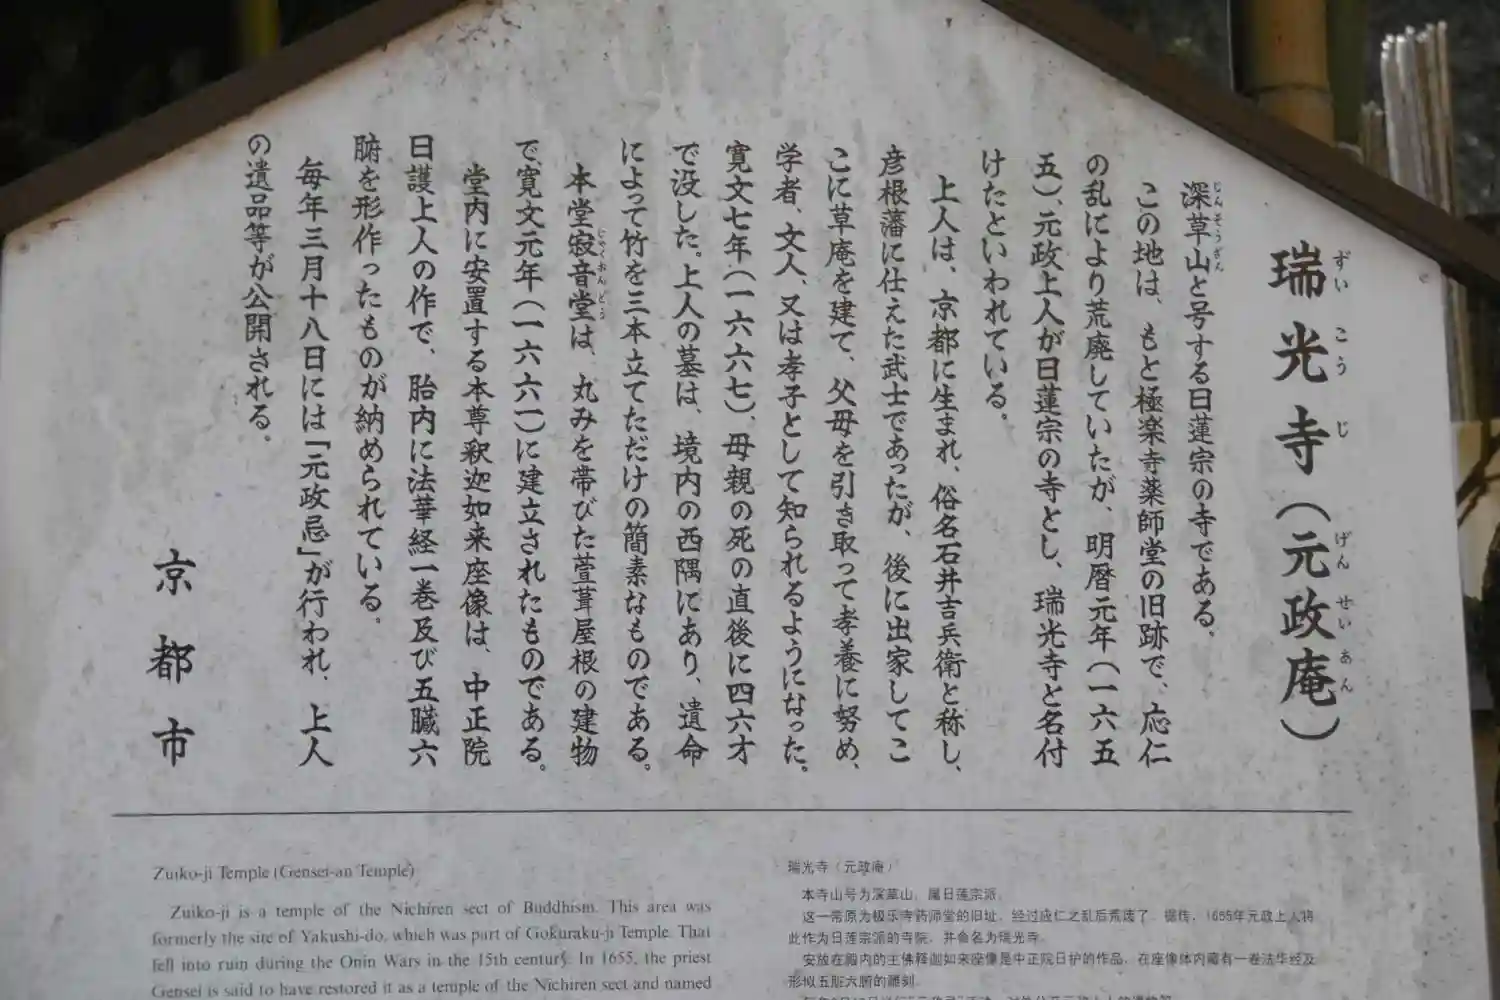 瑞光寺（元政庵）
ずいこうじ げんせいあん
深草山と号する日蓮宗の寺である。
じんそうざん
この地は、もと極楽寺薬師堂の旧跡で、応仁
の乱により荒廃していたが、明暦元年（一六五
五）、元政上人が日蓮宗の寺とし、瑞光寺と名付
けたといわれている。
上人は、京都に生まれ、俗名石井吉兵衛と称し、
彦根藩に仕えた武士であったが、後に出家してこ
こに草庵を建て、父母を引き取って孝養に努め、
学者、文人、又は孝子として知られるようになった。
寛文七年（一六六七）、母親の死の直後に四六才
で没した。上人の墓は、境内の西隅にあり、遺命
によって竹を三本立てただけの簡素なものである。
本堂寂音堂は、丸みを帯びた萱葺屋根の建物
じゃくおんどう
で、寛文元年（一六六一）に建立されたものである。
堂内に安置する本尊釈迦如来座像は、中正院
日護上人の作で、胎内に法華経一巻及び五臓六
腑を形作ったものが納められている。
毎年三月十八日には「元政忌」が行われ、上人
の遺品等が公開される。
京都市
Zuiko-ji Temple (Gensei-an Temple)
Zuiko-ji is a temple of the Nichiren sect of Buddhism. This area was
formerly the site of Yakushi-do, which was part of Gokuraku-ji Temple. That
fell into ruin during the Onin Wars in the 15th century. In 1655, the priest
Gensei is said to have restored it as a temple of the Nichiren sect and named
瑞光寺（元政庵）
本寺山号为深草山，属日莲宗派。
这一带原为极乐寺药师堂的旧址，经过应仁之乱后荒废了。据传，1655年元政上人将
此作为日莲宗派的寺院，并命名为瑞光寺。
安放在殿内的主佛释迦如来座像是中正院日护的作品，在座像体内藏有一卷法华经及
形似五脏六腑的雕刻。